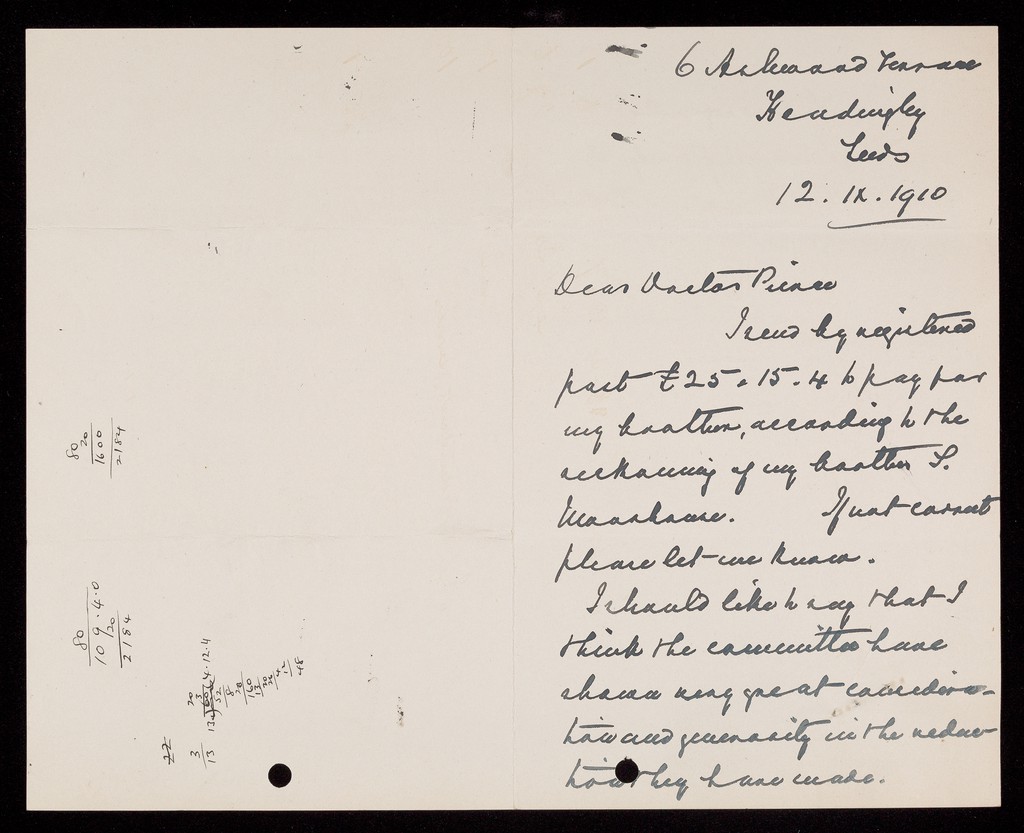 6 Ashwood Terrace
Headingley
Leeds
12. IX. 1910
Dear Doctor Pierce
I send by registered
post £25.15.4 to pay for
my brother, according to the
reckoning of my brother S.
Moorhouse. If not correct
please let me know.
I should like to say that I
think the committee have
shown very great considera-
tion and generosity in the reduc-
tion they have made.
80
20
1600
2184
80
109.4.0
20
2184
22
3
13
20
3
4.12.4
52
8
20
160
13
12
48